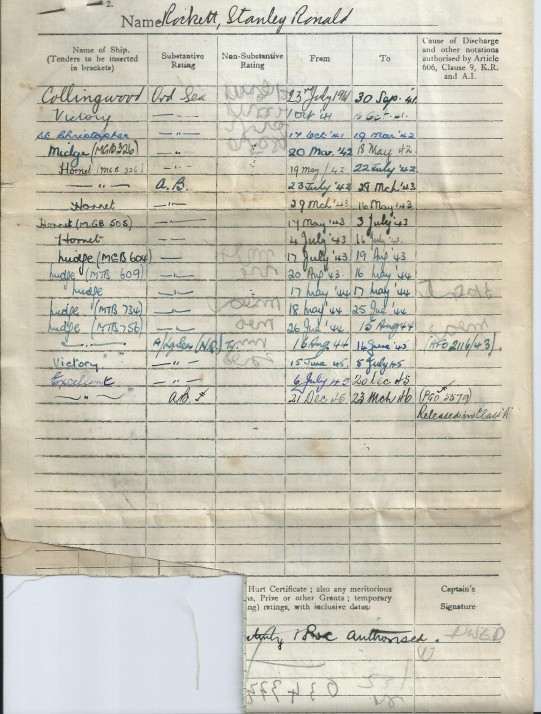 2.
Name Rockett, Stanley Ronald
Name of Ship. (Tenders to be inserted in brackets) Substantive Rating Non-Substantive Rating From To Cause of Discharge and other notations authorised by Article 606, Clause 9, K.R. and A.I.
Collingwood Ord Sea 23rd July 1941 30 Sep. 41.
Victory —"— 1 Oct 41 Oct. 41.
St Christopher —"— Oct '41 19 Mar '42
Midge (MGB 326) —"— 20 Mar. '42 18 May 42.
Hornet (MGB 326) 19 May /42 22 July '42
—"— A.B. 23 July '42 28 Mch '43
Hornet —"— 29 Mch '43 16 May '43
Hornet (M.GB 505) —"— 17 May '43 3 July '43
Hornet — 4 July '43 16 July '43.
Midge (MGB 604) — 17 July '43 19 Aug '43
Midge (MTB 609) —"— 20 Aug '43 16 May '44
Midge —"— 17 May '44 17 May '44
Midge (MTB 734) —"— 18 May '44 25 Jne '44
Midge (MTB 756) —"— 26 Jne '44 15 Aug 44
—"— A/Ldg Sea (N.S.) Ty. 16 Aug 44 14 June 45 (AFO 2116/43)
Victory —"— 15 June 45. 5 July 45
Excellent —"— 6 July 45 20 Dec 45
—"— AB 21 Dec 45 23 Mch 46
Released in Class A
Hurt Certificate ; also any meritorious
Prize or other Grants ; temporary
ratings, with inclusive dates.
Captain's
Signature
authorised.